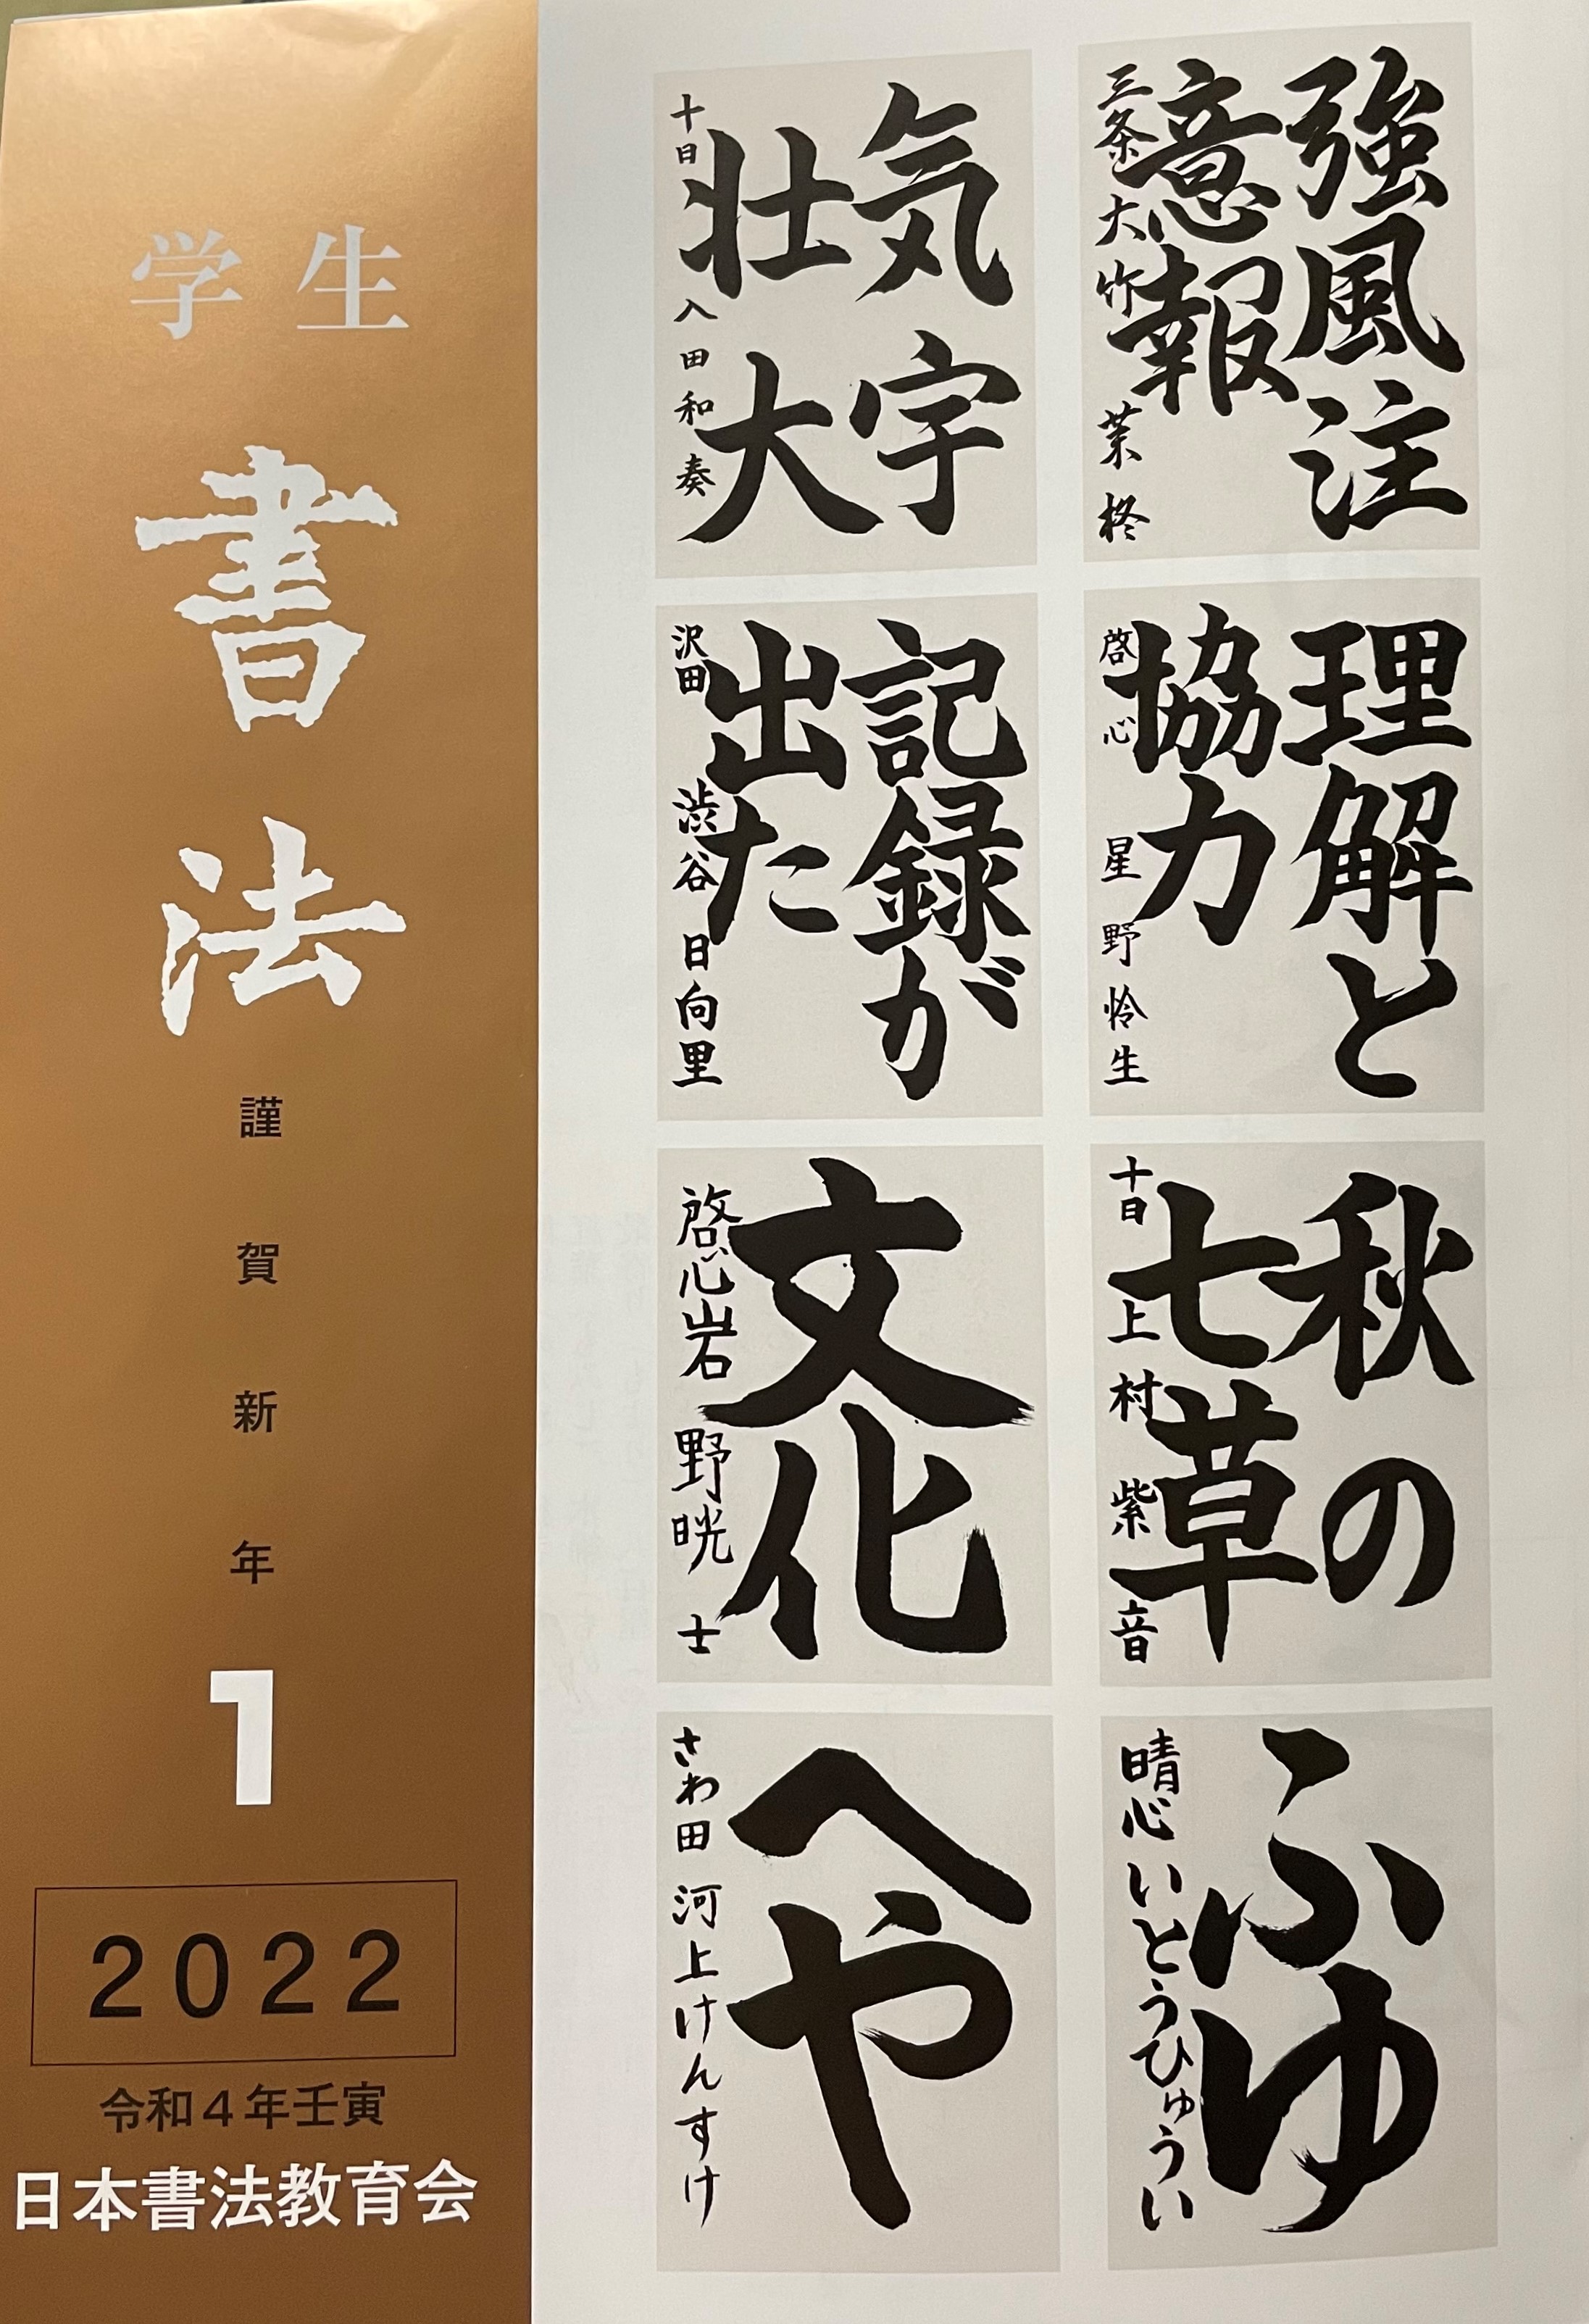 学生
書法
謹賀新年
1
2022
令和4年壬寅
日本書法教育会
強風注
意報
三条大竹 茉柊
気宇
壮大
十日 八田和奏
理解と
協力
啓心 星野怜生
記録が
出た
沢田 渋谷日向里
秋の
七草
十日 上村紫音
文化
啓心 岩野晄士
ふゆ
晴心 いとうひゅうい
へや
さわ田 河上けんすけ